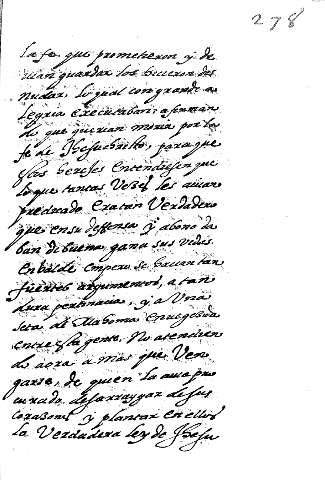 278
la fe que prometieron y de
uian guardar los hicieron des
nudar, lo qual con grande a
legria executaban afirman
do que querian morir por la
fe de Jhesuchristo, para que
los hereses entendiesen que
lo que tantas Vezes les auian
predicado era tan Verdadero
que en su deffensa y abono da
ban de buena gana sus vidas
en balde empero se hacian tan
fuertes argumentos, a tan
dura pertinacia, y a Una
seta de Mahoma enuegecida
entre esta gente. No atendien
do aora a mas que Ven
garse, de quien la auia pro
curado desarraygar de sus
corazones y plantar en ellos
la Verdadera ley de Jhesu